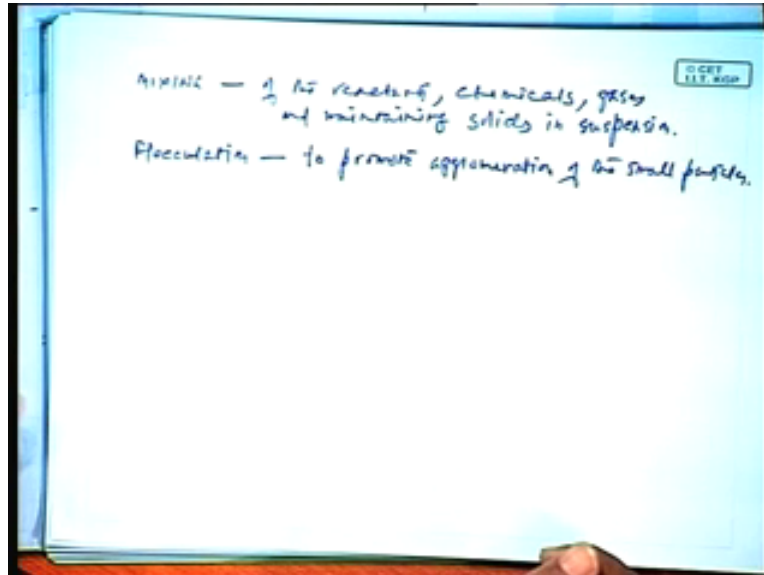 MIXING — of the reactants, chemicals, gases
and maintaining solids in suspension.
Flocculation — to promote agglomeration of the small particles.
© CET
I.I.T. KGP